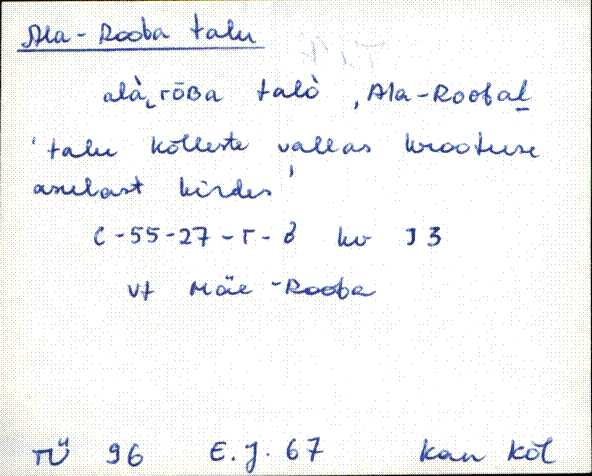 Ala-Rooba talu
alà‿rōʙa talò ‚Ala-Roobal
' talu Kõlleste vallas Krootuse
asulast kirdes'
C-55-27-Г-в kv J3
vt Mäe-Rooba
TÜ 96 E.J. 67 Kan Kõl